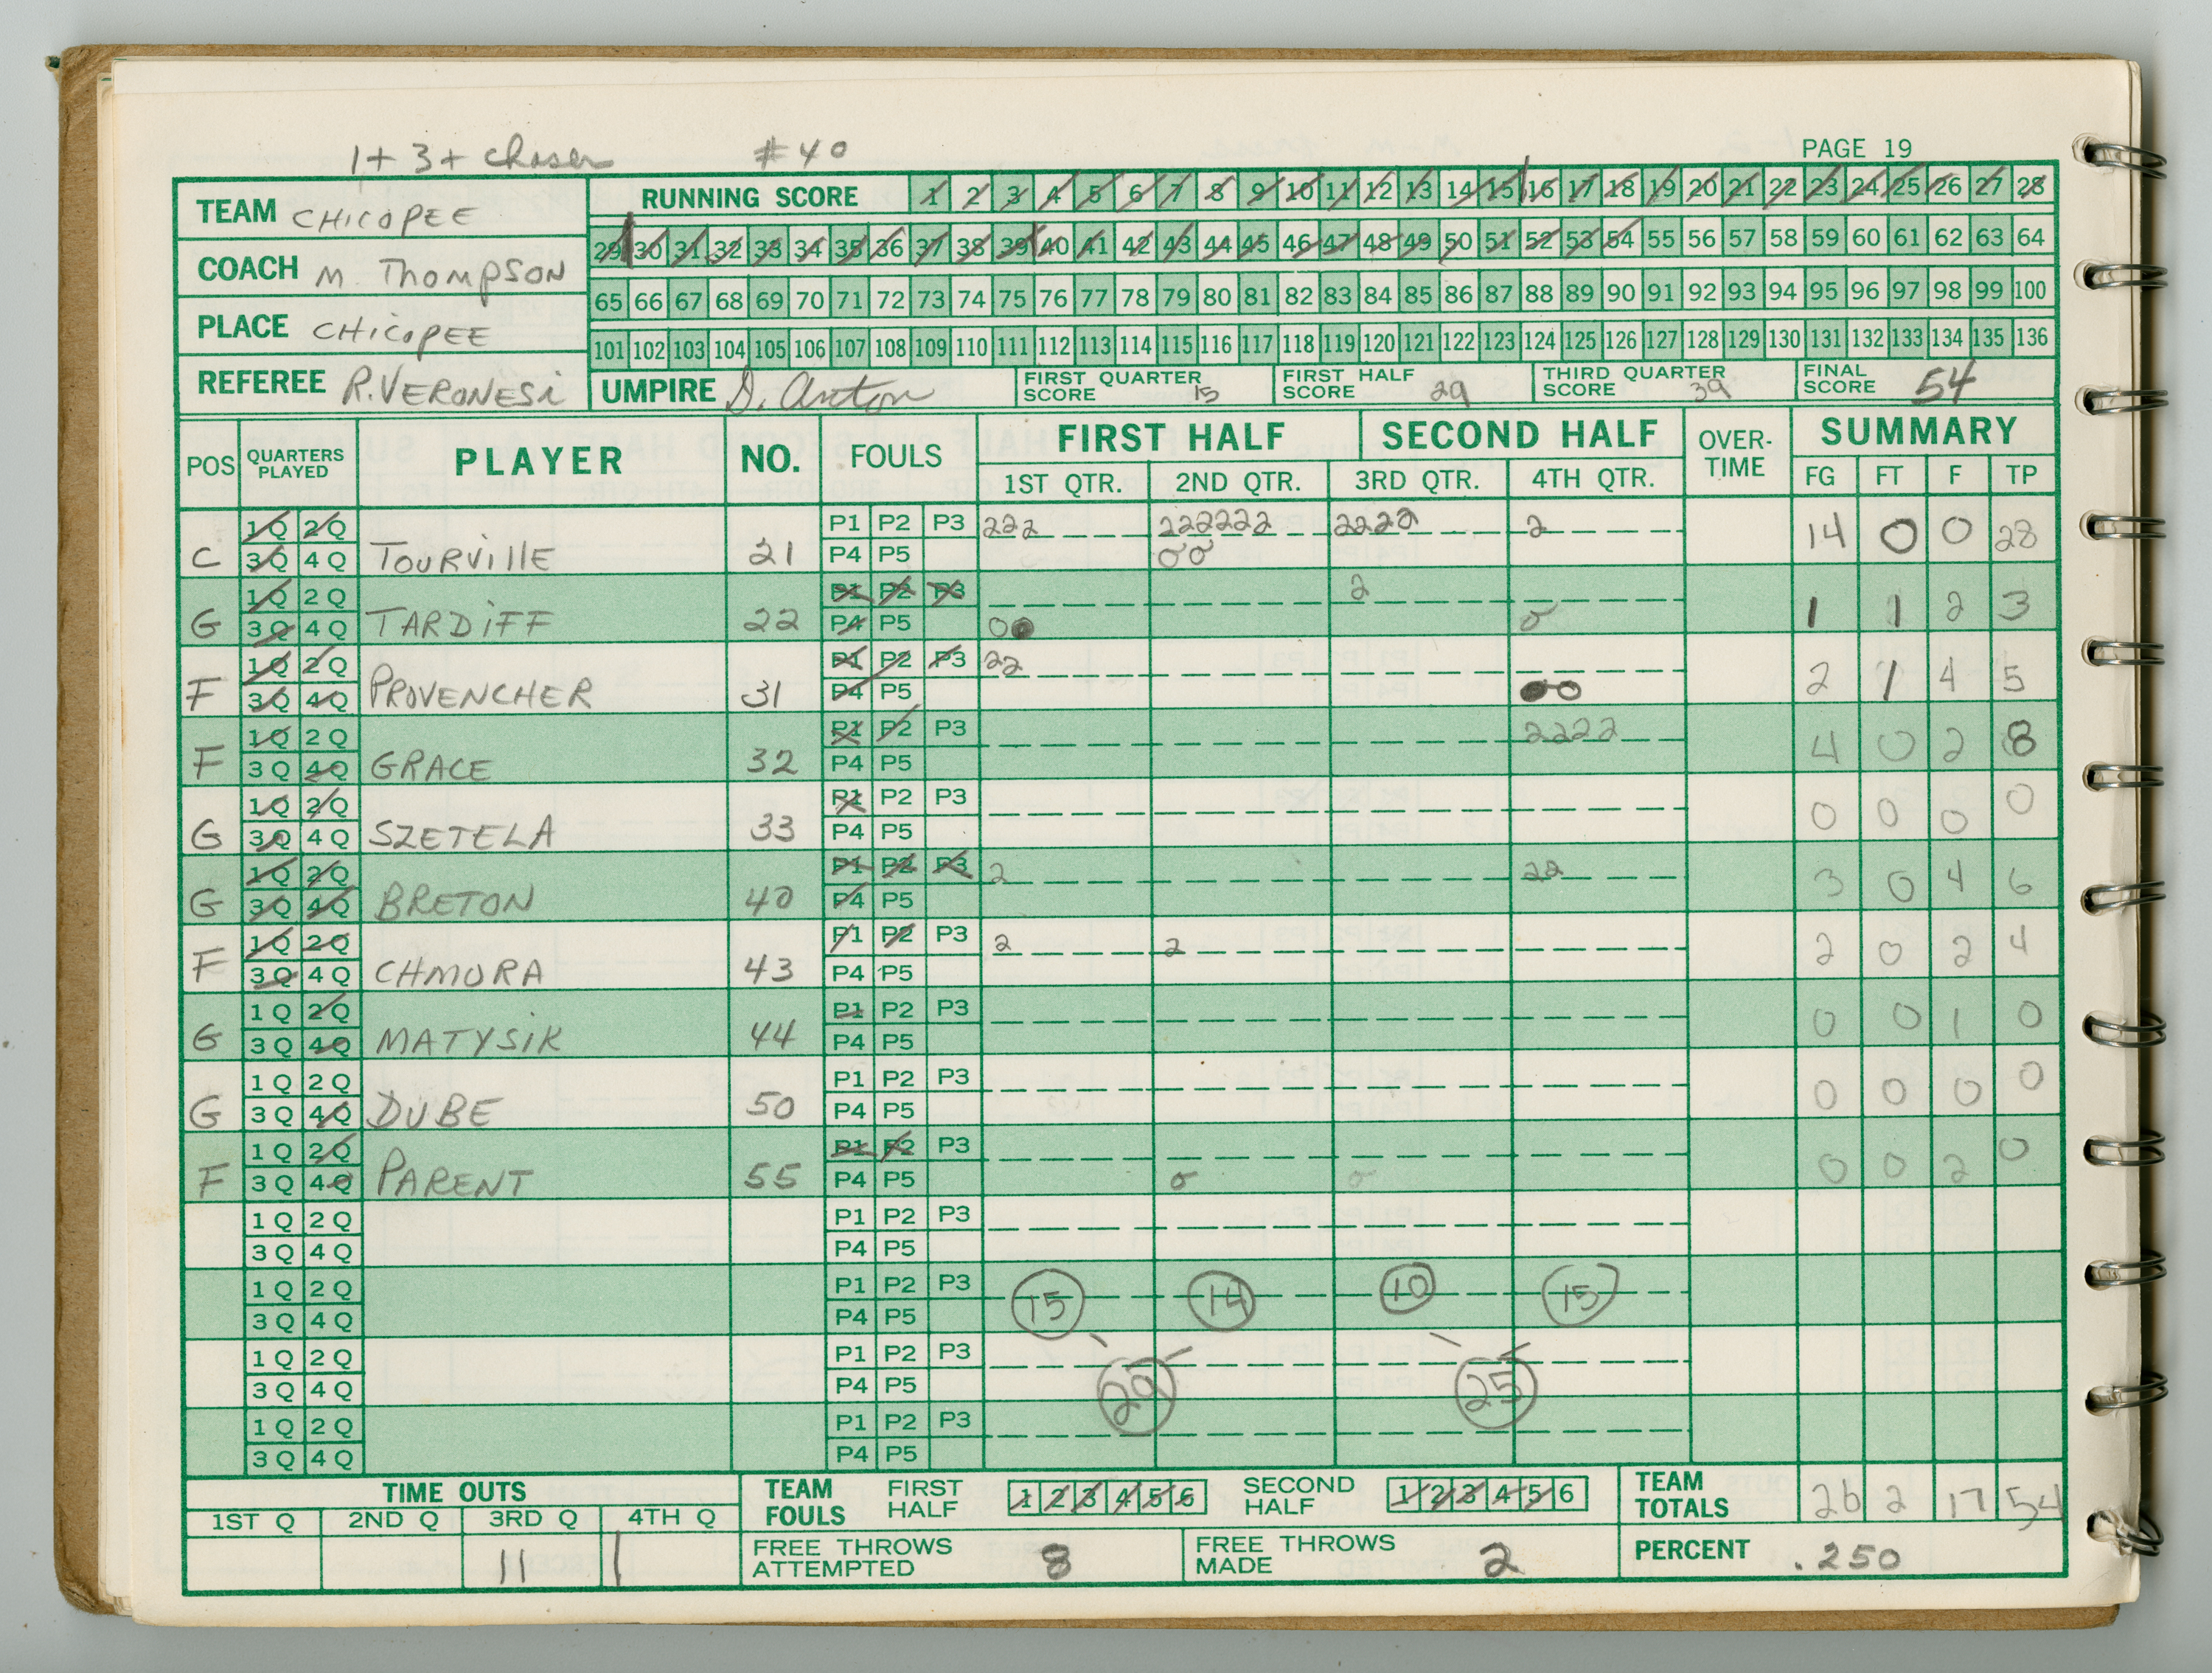 1+3+chaser #40
PAGE 19
TEAM CHICOPEE
RUNNING SCORE 1 2 3 4 5 6 7 8 9 10 11 12 13 14 15 16 17 18 19 20 21 22 23 24 25 26 27 28
29 30 31 32 33 34 35 36 37 38 39 40 41 42 43 44 45 46 47 48 49 50 51 52 53 54 55 56 57 58 59 60 61 62 63 64
COACH M. THOMPSON
65 66 67 68 69 70 71 72 73 74 75 76 77 78 79 80 81 82 83 84 85 86 87 88 89 90 91 92 93 94 95 96 97 98 99 100
PLACE CHICOPEE
101 102 103 104 105 106 107 108 109 110 111 112 113 114 115 116 117 118 119 120 121 122 123 124 125 126 127 128 129 130 131 132 133 134 135 136
REFEREE R. VERONESI UMPIRE D. Anton FIRST QUARTER SCORE 15 FIRST HALF SCORE 29 THIRD QUARTER SCORE 39 FINAL SCORE 54
POS QUARTERS PLAYED PLAYER NO. FOULS FIRST HALF SECOND HALF OVER-TIME SUMMARY
1ST QTR. 2ND QTR. 3RD QTR. 4TH QTR. FG FT F TP
1Q 2Q P1 P2 P3 222 222222 2222 2
C 3Q 4Q TOURVILLE 21 P4 P5 14 0 0 28
1Q 2Q P1 P2 P3 2
G 3Q 4Q TARDIFF 22 P4 P5 1 1 2 3
1Q 2Q P1 P2 P3 22
F 3Q 4Q PROVENCHER 31 P4 P5 2 1 4 5
1Q 2Q P1 P2 P3 2222
F 3Q 4Q GRACE 32 P4 P5 4 0 2 8
1Q 2Q P1 P2 P3
G 3Q 4Q SZETELA 33 P4 P5 0 0 0 0
1Q 2Q P1 P2 P3 2 22
G 3Q 4Q BRETON 40 P4 P5 3 0 4 6
1Q 2Q P1 P2 P3 2 2
F 3Q 4Q CHMURA 43 P4 P5 2 0 2 4
1Q 2Q P1 P2 P3
G 3Q 4Q MATYSIK 44 P4 P5 0 0 1 0
1Q 2Q P1 P2 P3
G 3Q 4Q DUBE 50 P4 P5 0 0 0 0
1Q 2Q P1 P2 P3
F 3Q 4Q PARENT 55 P4 P5 0 0 2 0
1Q 2Q P1 P2 P3
3Q 4Q P4 P5
1Q 2Q P1 P2 P3 15 14 10 15
3Q 4Q P4 P5
1Q 2Q P1 P2 P3
3Q 4Q P4 P5 29 25
1Q 2Q P1 P2 P3
3Q 4Q P4 P5
TIME OUTS TEAM FOULS FIRST HALF 1 2 3 4 5 6 SECOND HALF 1 2 3 4 5 6 TEAM TOTALS 26 2 17 54
1ST Q 2ND Q 3RD Q 4TH Q
11 1 FREE THROWS ATTEMPTED 8 FREE THROWS MADE 2 PERCENT .250